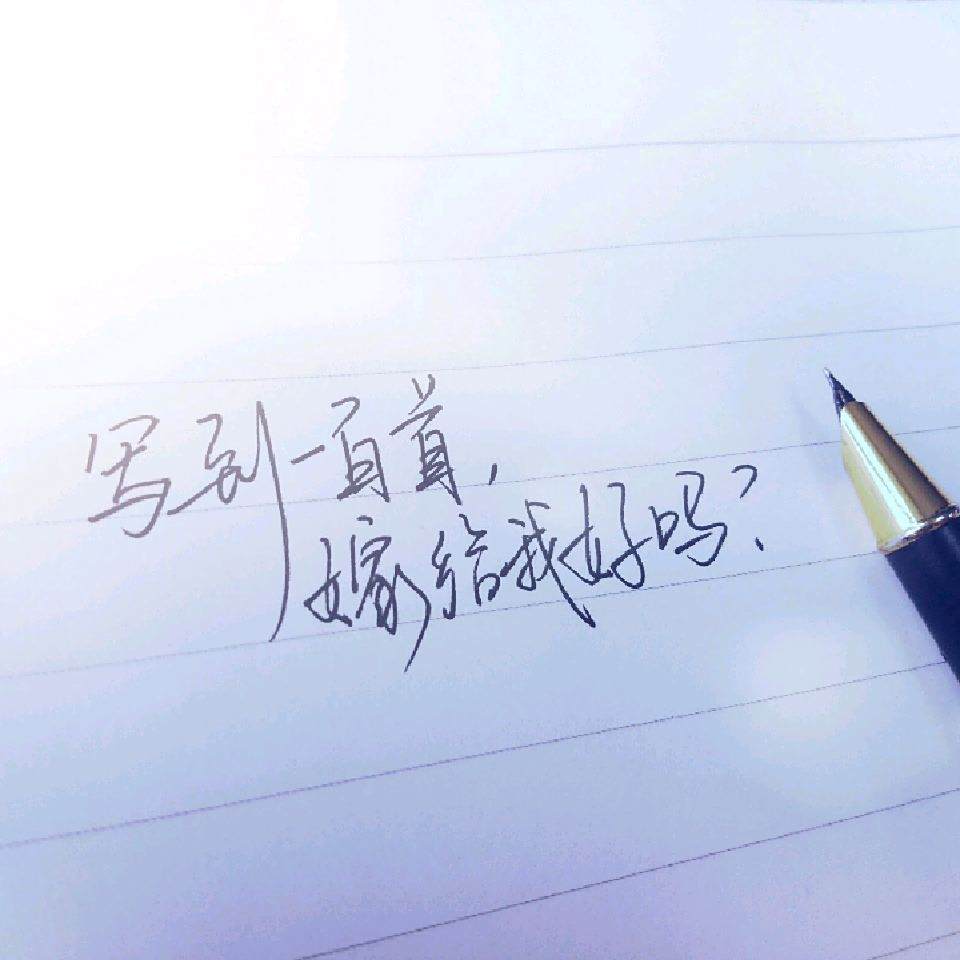 写到一百首,
嫁给我好吗?